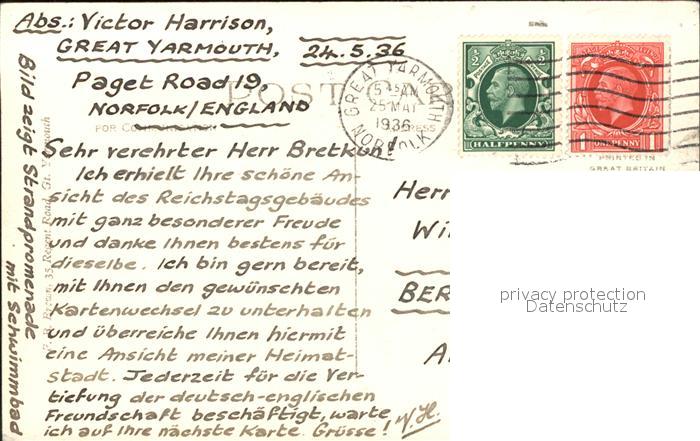 Abs.: Victor Harrison,
GREAT YARMOUTH,
24.5.36
Paget Road 19,
NORFOLK/ENGLAND
POST
FOR
GREAT YARMOUTH
25 MAY
1936
NORFOLK
HALFPENNY
ONE PENNY
PRINTED IN
GREAT BRITAIN
Sehr verehrter Herr Bretkuhn!
Ich erhielt Ihre schöne An-
sicht des Reichstagsgebäudes
mit ganz besonderer Freude
und danke Ihnen bestens für
dieselbe. Ich bin gern bereit,
mit Ihnen den gewünschten
Kartenwechsel zu unterhalten
und überreiche Ihnen hiermit
eine Ansicht meiner Heimat-
stadt. Jederzeit für die Ver-
tiefung der deutsch-englischen
Freundschaft beschäftigt, warte
ich auf Ihre nächste Karte. Grüsse!
V.H.
Herr
Wi
BER
A
privacy protection
Datenschutz
Bild zeigt Strandpromenade
mit Schwimmbad
35 Regent Road, Gt. Yarmouth